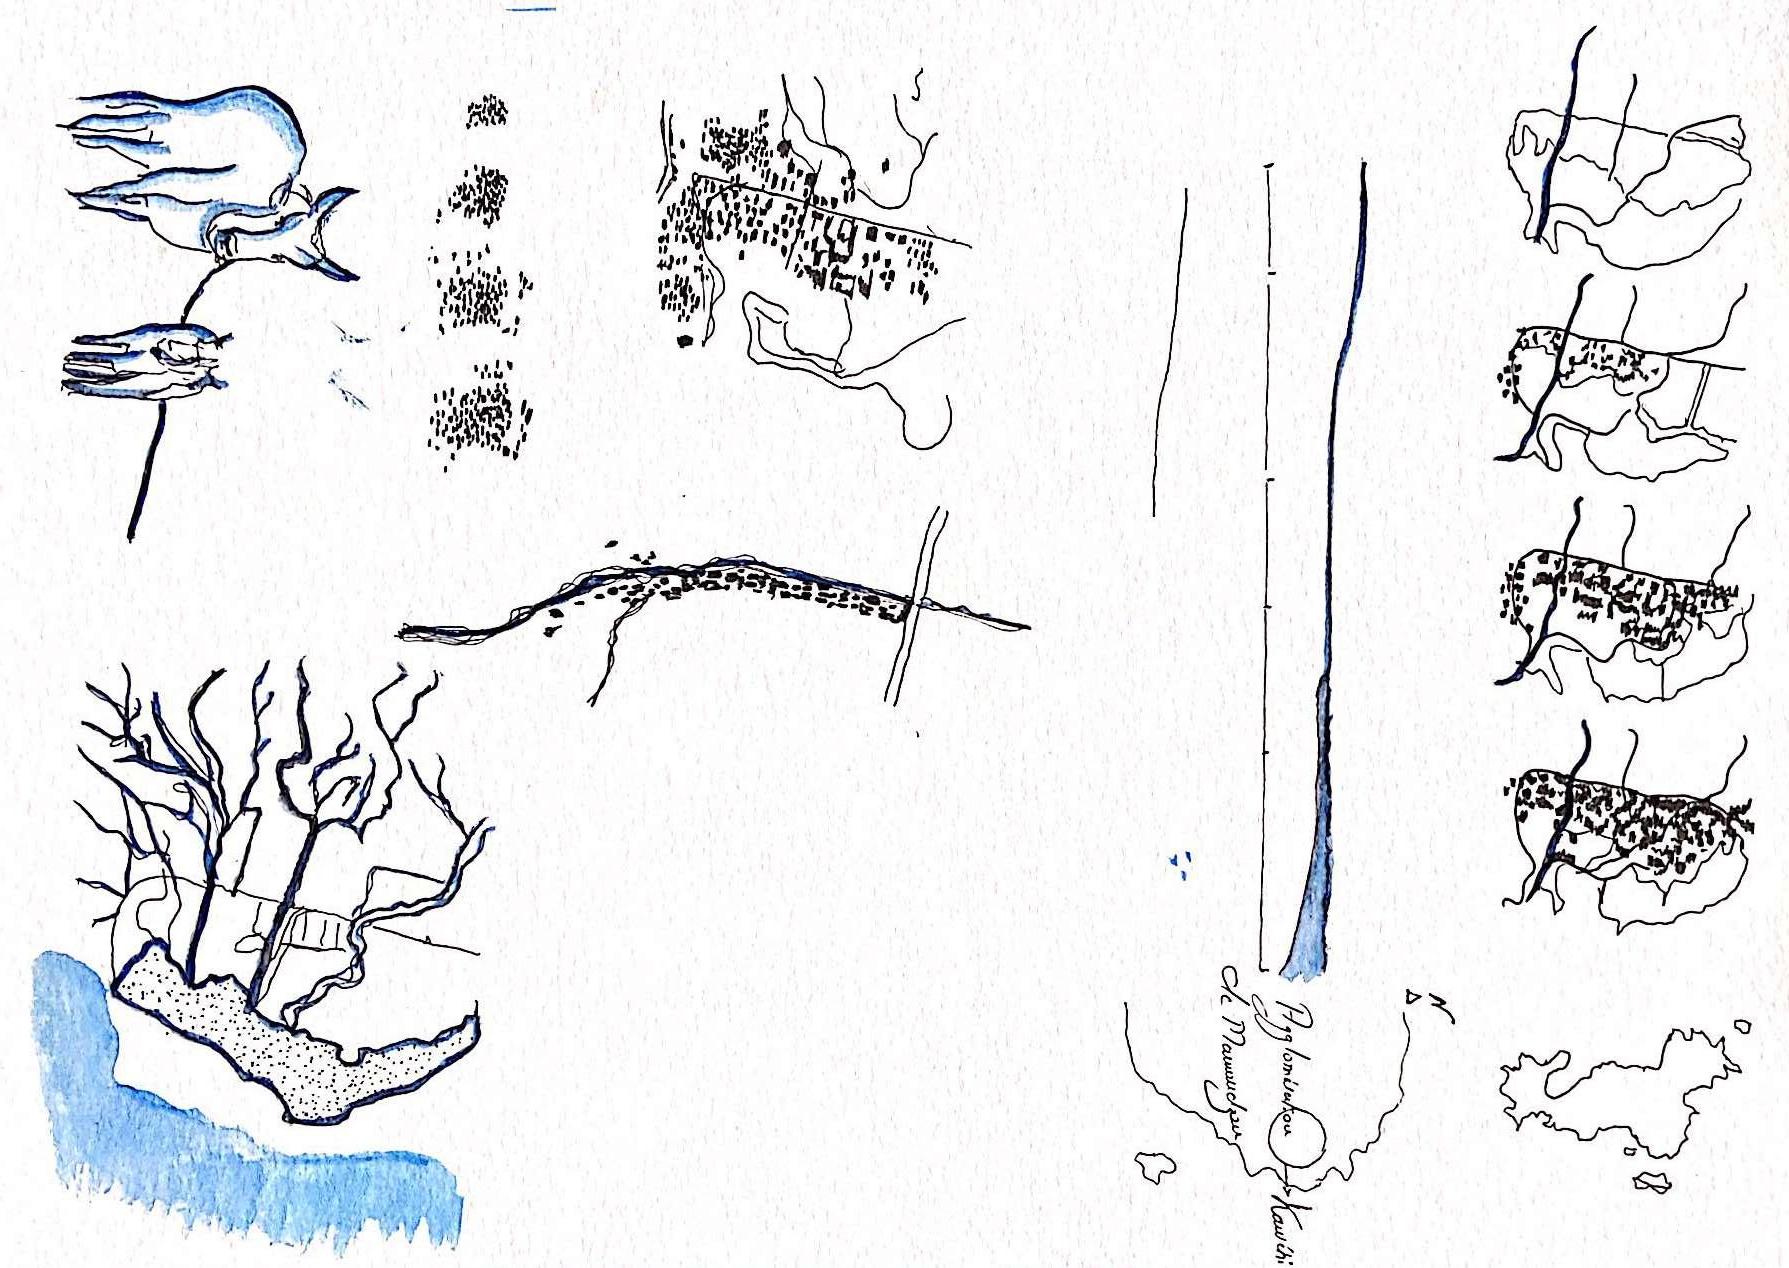 N
Agglomération
de Mamoudzou
Kawéni